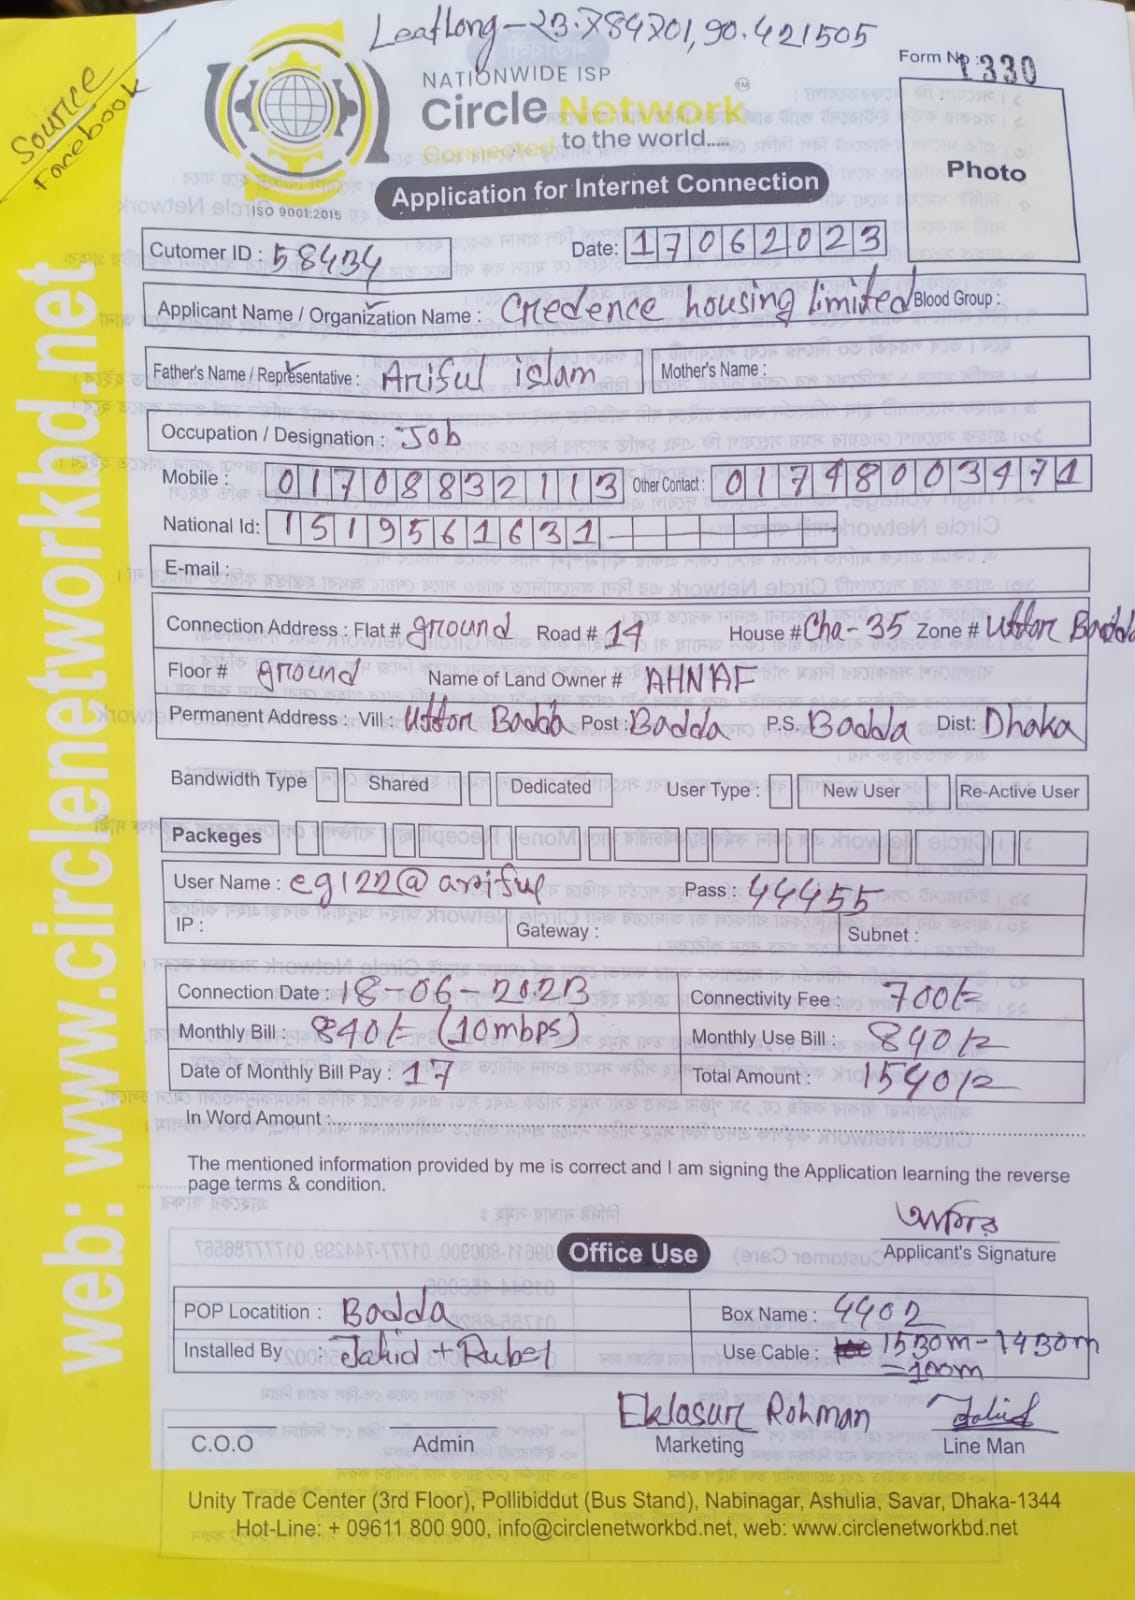 Leatlong - 23.784701, 90.421505
Source
Facebook
NATIONWIDE ISP
Circle Network
Connected to the world.....
ISO 9001:2015
Form No : 1330
Photo
Application for Internet Connection
Cutomer ID : 58434
Date: 17062023
Applicant Name / Organization Name : Credence housing limited Blood Group :
Father's Name / Representative : Ariful islam Mother's Name :
Occupation / Designation : Job
Mobile : 01708832113 Other Contact : 01748003471
National Id: 1519561631
E-mail :
Connection Address : Flat # ground Road # 14 House # Cha-35 Zone # Uttor Badda
Floor # ground Name of Land Owner # AHNAF
Permanent Address : Vill : Uttor Badda Post : Badda P.S. Badda Dist: Dhaka
Bandwidth Type Shared Dedicated User Type : New User Re-Active User
Packeges
User Name : eg122@ariful Pass : 44455
IP : Gateway : Subnet :
Connection Date : 18-06-2023 Connectivity Fee : 700/=
Monthly Bill : 840/= (10mbps) Monthly Use Bill : 840/=
Date of Monthly Bill Pay : 17 Total Amount : 1540/=
In Word Amount :
The mentioned information provided by me is correct and I am signing the Application learning the reverse
page terms & condition.
Applicant's Signature
Office Use
POP Locatition : Badda Box Name : 4402
Installed By : Jahid + Rubel Use Cable : 1530m - 1430m
=100m
Eklasur Rohman Jahid
C.O.O Admin Marketing Line Man
Unity Trade Center (3rd Floor), Pollibiddut (Bus Stand), Nabinagar, Ashulia, Savar, Dhaka-1344
Hot-Line: + 09611 800 900, info@circlenetworkbd.net, web: www.circlenetworkbd.net
web: www.circlenetworkbd.net